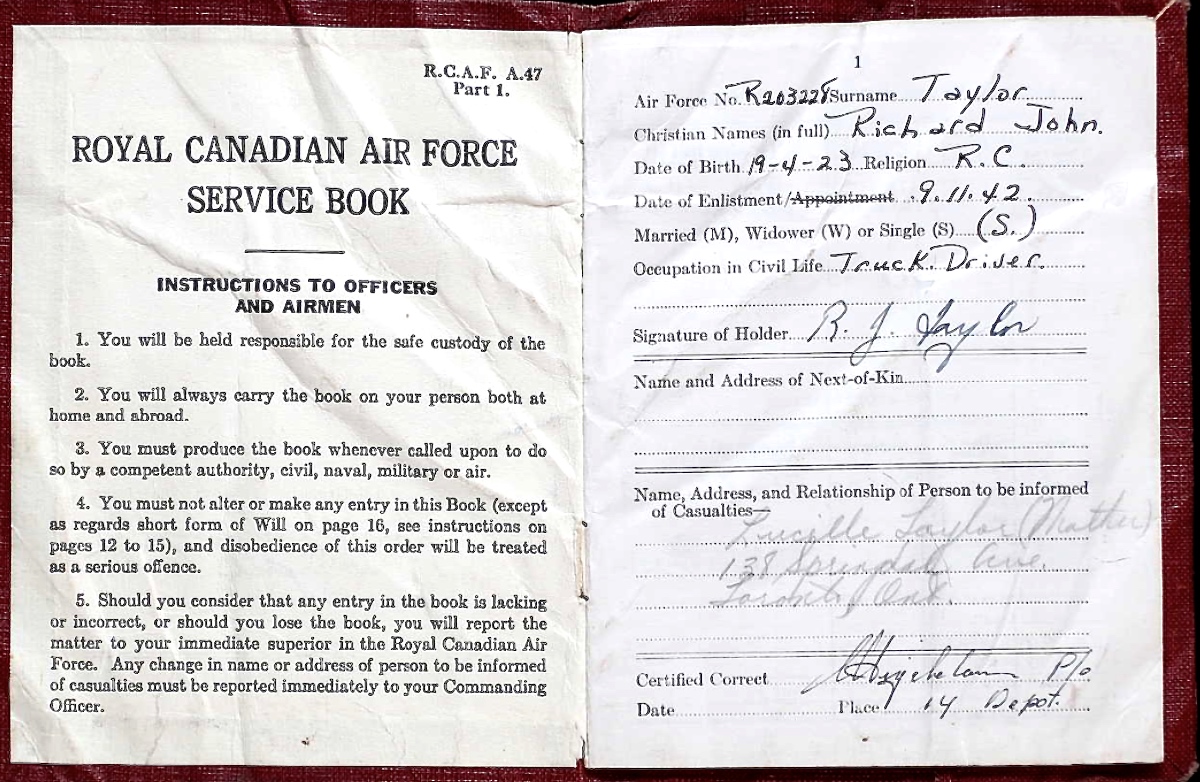 R.C.A.F. A.47
Part 1.
ROYAL CANADIAN AIR FORCE
SERVICE BOOK
INSTRUCTIONS TO OFFICERS
AND AIRMEN
1. You will be held responsible for the safe custody of the
book.
2. You will always carry the book on your person both at
home and abroad.
3. You must produce the book whenever called upon to do
so by a competent authority, civil, naval, military or air.
4. You must not alter or make any entry in this Book (except
as regards short form of Will on page 16, see instructions on
pages 12 to 15), and disobedience of this order will be treated
as a serious offence.
5. Should you consider that any entry in the book is lacking
or incorrect, or should you lose the book, you will report the
matter to your immediate superior in the Royal Canadian Air
Force. Any change in name or address of person to be informed
of casualties must be reported immediately to your Commanding
Officer.
1
Air Force No. R203228 Surname Taylor
Christian Names (in full) Richard John.
Date of Birth 19-4-23 Religion R.C.
Date of Enlistment/Appointment 9.11.42.
Married (M), Widower (W) or Single (S) (S.)
Occupation in Civil Life Truck Driver.
Signature of Holder R. J. Taylor
Name and Address of Next-of-Kin
Name, Address, and Relationship of Person to be informed
of Casualties—
Taylor (Mother)
138 Ave.
Toronto, Ont.
Certified Correct P/o
Date Place 14 Depot.